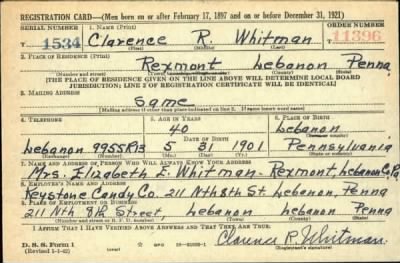 REGISTRATION CARD—(Men born on or after February 17, 1897 and on or before December 31, 1921)
SERIAL NUMBER 1. NAME (Print) ORDER NUMBER
T 1534 Clarence R. Whitman T 11396
(First) (Middle) (Last)
2. PLACE OF RESIDENCE (Print)
Rexmont Lebanon Penna
(Number and street) (Town, township, village, or city) (County) (State)
[THE PLACE OF RESIDENCE GIVEN ON THE LINE ABOVE WILL DETERMINE LOCAL BOARD
JURISDICTION; LINE 2 OF REGISTRATION CERTIFICATE WILL BE IDENTICAL]
3. MAILING ADDRESS
Same
[Mailing address if other than place indicated on line 2. If same insert word same]
4. TELEPHONE 5. AGE IN YEARS 6. PLACE OF BIRTH
40 Lebanon
DATE OF BIRTH (Town or county)
Lebanon 9955R13 5 31 1901 Pennsylvania
(Exchange) (Number) (Mo.) (Day) (Yr.) (State or country)
7. NAME AND ADDRESS OF PERSON WHO WILL ALWAYS KNOW YOUR ADDRESS
Mrs. Elizabeth E. Whitman - Rexmont, Lebanon Co, Pa
8. EMPLOYER'S NAME AND ADDRESS
Keystone Candy Co. 211 Nth 8th St Lebanon, Penna
9. PLACE OF EMPLOYMENT OR BUSINESS
211 Nth 8th Street, Lebanon Lebanon Penna
(Number and street or R. F. D. number) (Town) (County) (State)
I AFFIRM THAT I HAVE VERIFIED ABOVE ANSWERS AND THAT THEY ARE TRUE.
D. S. S. Form 1
(Revised 1-1-42) (over) GPO Clarence R. Whitman
(Registrant's signature)